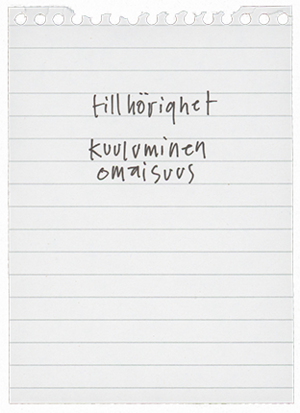 tillhörighet
kuuluminen
omaisuus